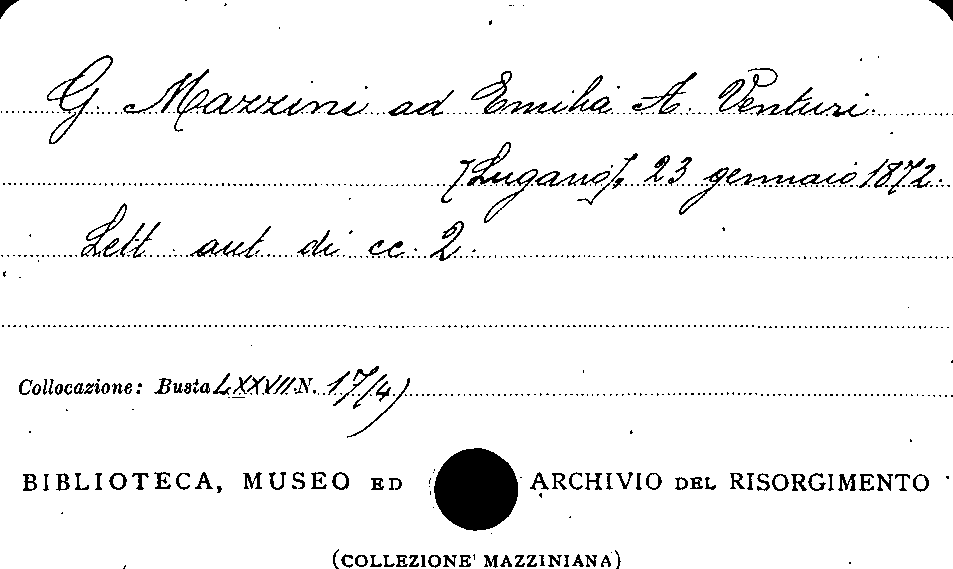 G. Mazzini ad Emilia A. Venturi.
[Lugano], 23 gennaio 1872.
Lett. aut. di cc. 2.
Collocazione: Busta LXXVII N. 17/4)
BIBLIOTECA, MUSEO ED ARCHIVIO DEL RISORGIMENTO
(COLLEZIONE MAZZINIANA)